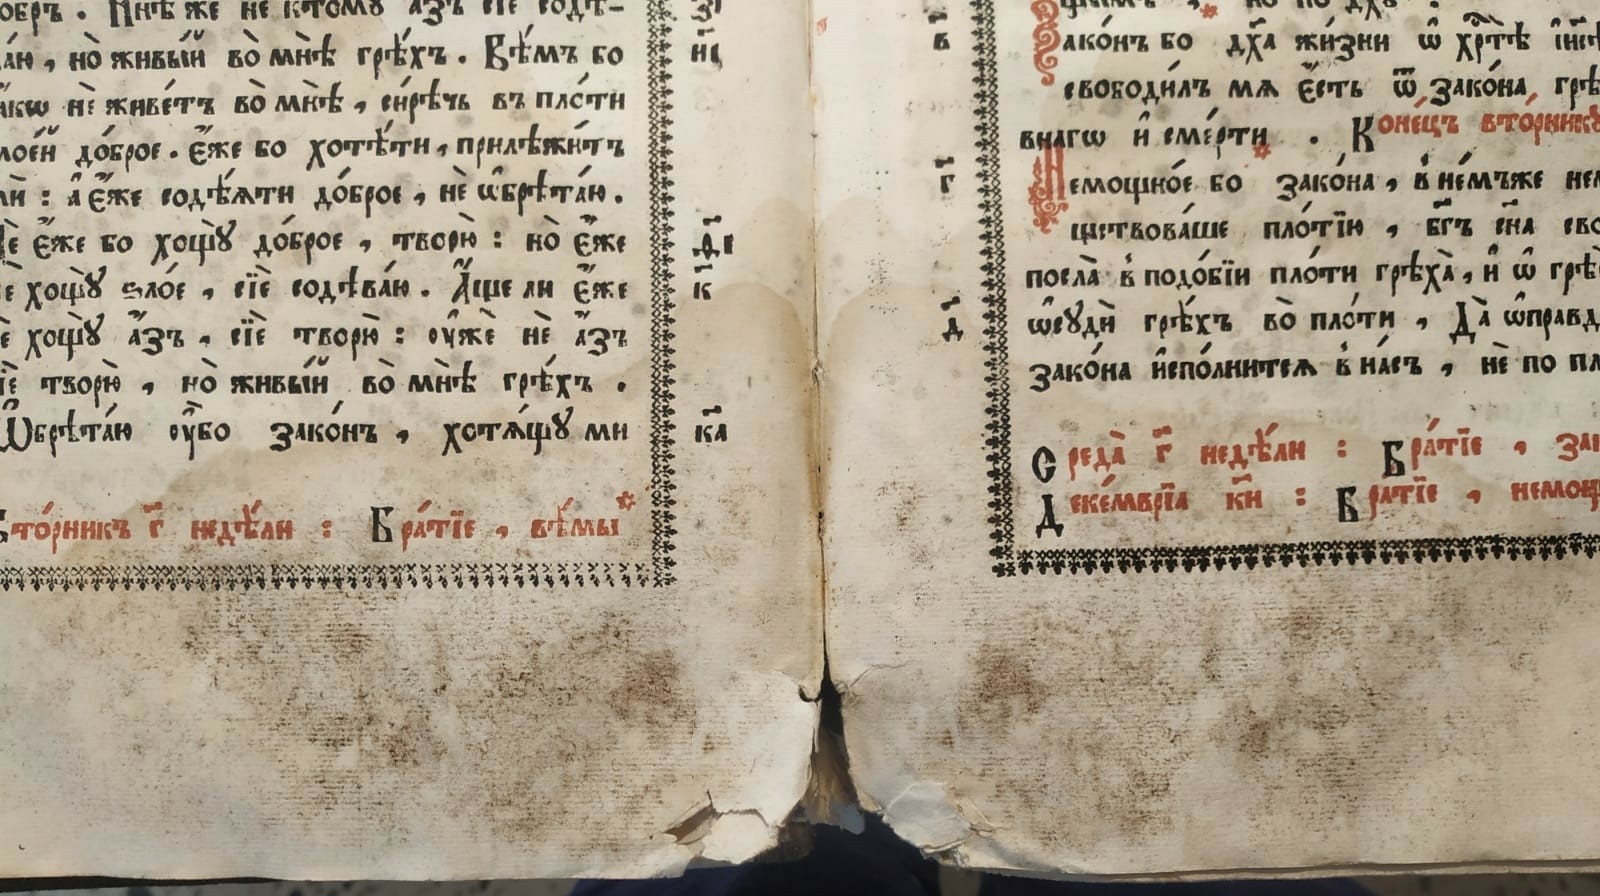 добръ. Ннѣ же не ктомꙋ а҆́зъ сїѐ содѣ-
ваю, но̀ живы́й во̀ мнѣ̀ грѣ́хъ. Вѣ́мъ бо
ꙗ҆́кѡ нѐ живе́тъ во̀ мнѣ̀, си́рѣчь въ пло́ти
мое́й до́брое. є҆́же бо хотѣ́ти, прилѣжи́тъ
мѝ: а҆ є҆́же содѣ́ѧти до́брое, нѐ ѡ҆брѣта́ю.
Нѐ є҆́же бо хощꙋ̀ до́брое, творю̀: но̀ є҆́же
нѐ хощꙋ̀ ѕло́е, сїѐ содѣва́ю. А҆́ще ли є҆́же
нѐ хощꙋ̀ а҆́зъ, сїѐ творю̀: ᲂу҆жѐ нѐ а҆́зъ
сїѐ творю̀, но̀ живы́й во̀ мнѣ̀ грѣ́хъ.
Ѡ҆брѣта́ю ᲂу҆̀бо зако́нъ, хотѧ́щꙋ ми
вто́рникъ г҃ недѣ́ли: Бра́тїе, вѣ́мы*
н҃і
к҃
к҃а
в҃
г҃
д҃
Зако́нъ бо дх҃а жи́зни ѡ҆ хрⷭ҇тѣ̀
свободи́лъ мѧ є҆́сть ѿ зако́на
внагѡ и҆ сме́рти. Коне́цъ вто́рникꙋ
*Немощно́е бо зако́на, в не́мъже
ществова́ше пло́тїю, бг҃ъ сн҃а
посла̀ в подо́бїи пло́ти грѣха̀, и҆ ѡ҆
ѡ҆сꙋдѝ грѣ́хъ во̀ пло́ти, Да̀
зако́на и҆спо́лнитсѧ в на́съ, нѐ по
Среда̀ г҃ недѣ́ли: Бра́тїе,
Деке́мврїа к҃и: Бра́тїе,